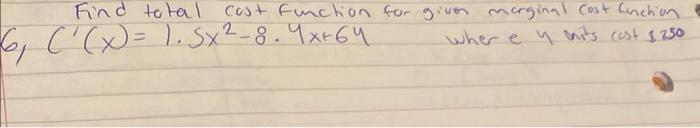 Find total cost function for given marginal cost function
6, C'(x) = 1.5x²-8.4x+64 where 4 units cost $250